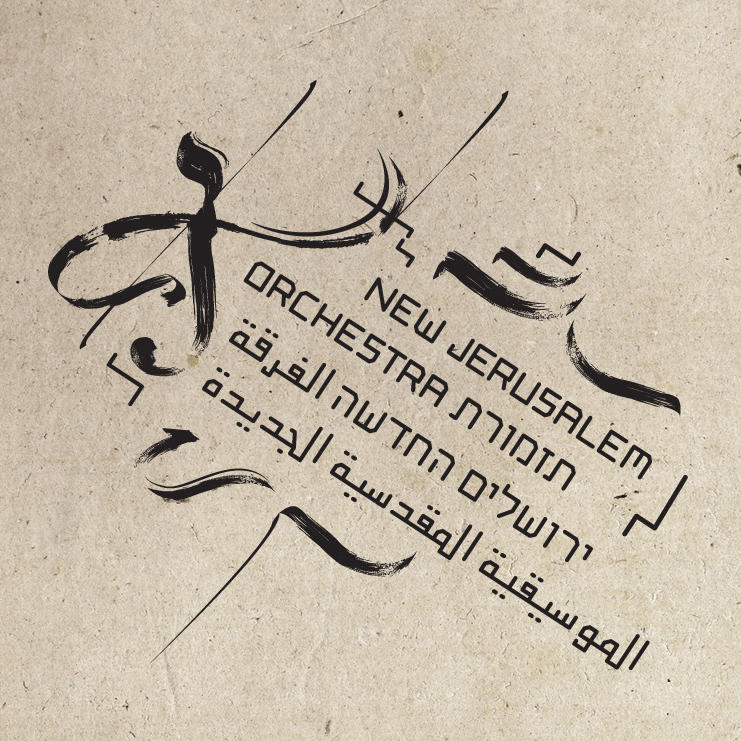 NEW JERUSALEM
ORCHESTRA תזמורת
ירושלים החדשה الفرقة
الموسيقية المقدسية الجديدة